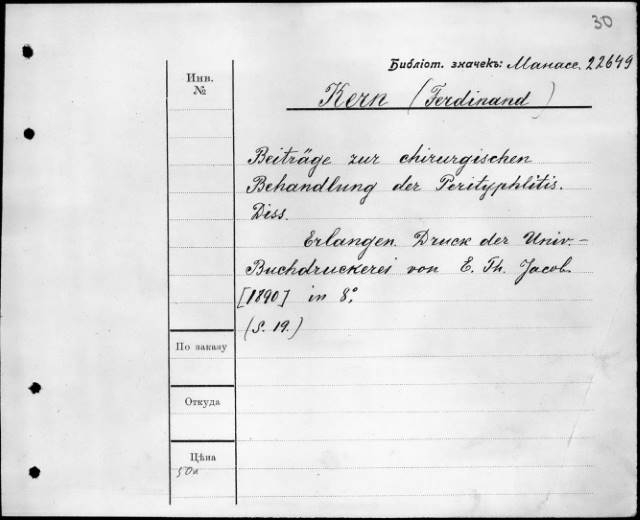 30
Библіот. значекъ: Манасе. 22649
Инв.
№
Kern (Ferdinand)
Beiträge zur chirurgischen
Behandlung der Perityphlitis.
Diss.
Erlangen. Druck der Univ.-
Buchdruckerei von E. Th. Jacob.
[1890] in 8º.
(S. 19.)
По заказу
Откуда
Цѣна
50к